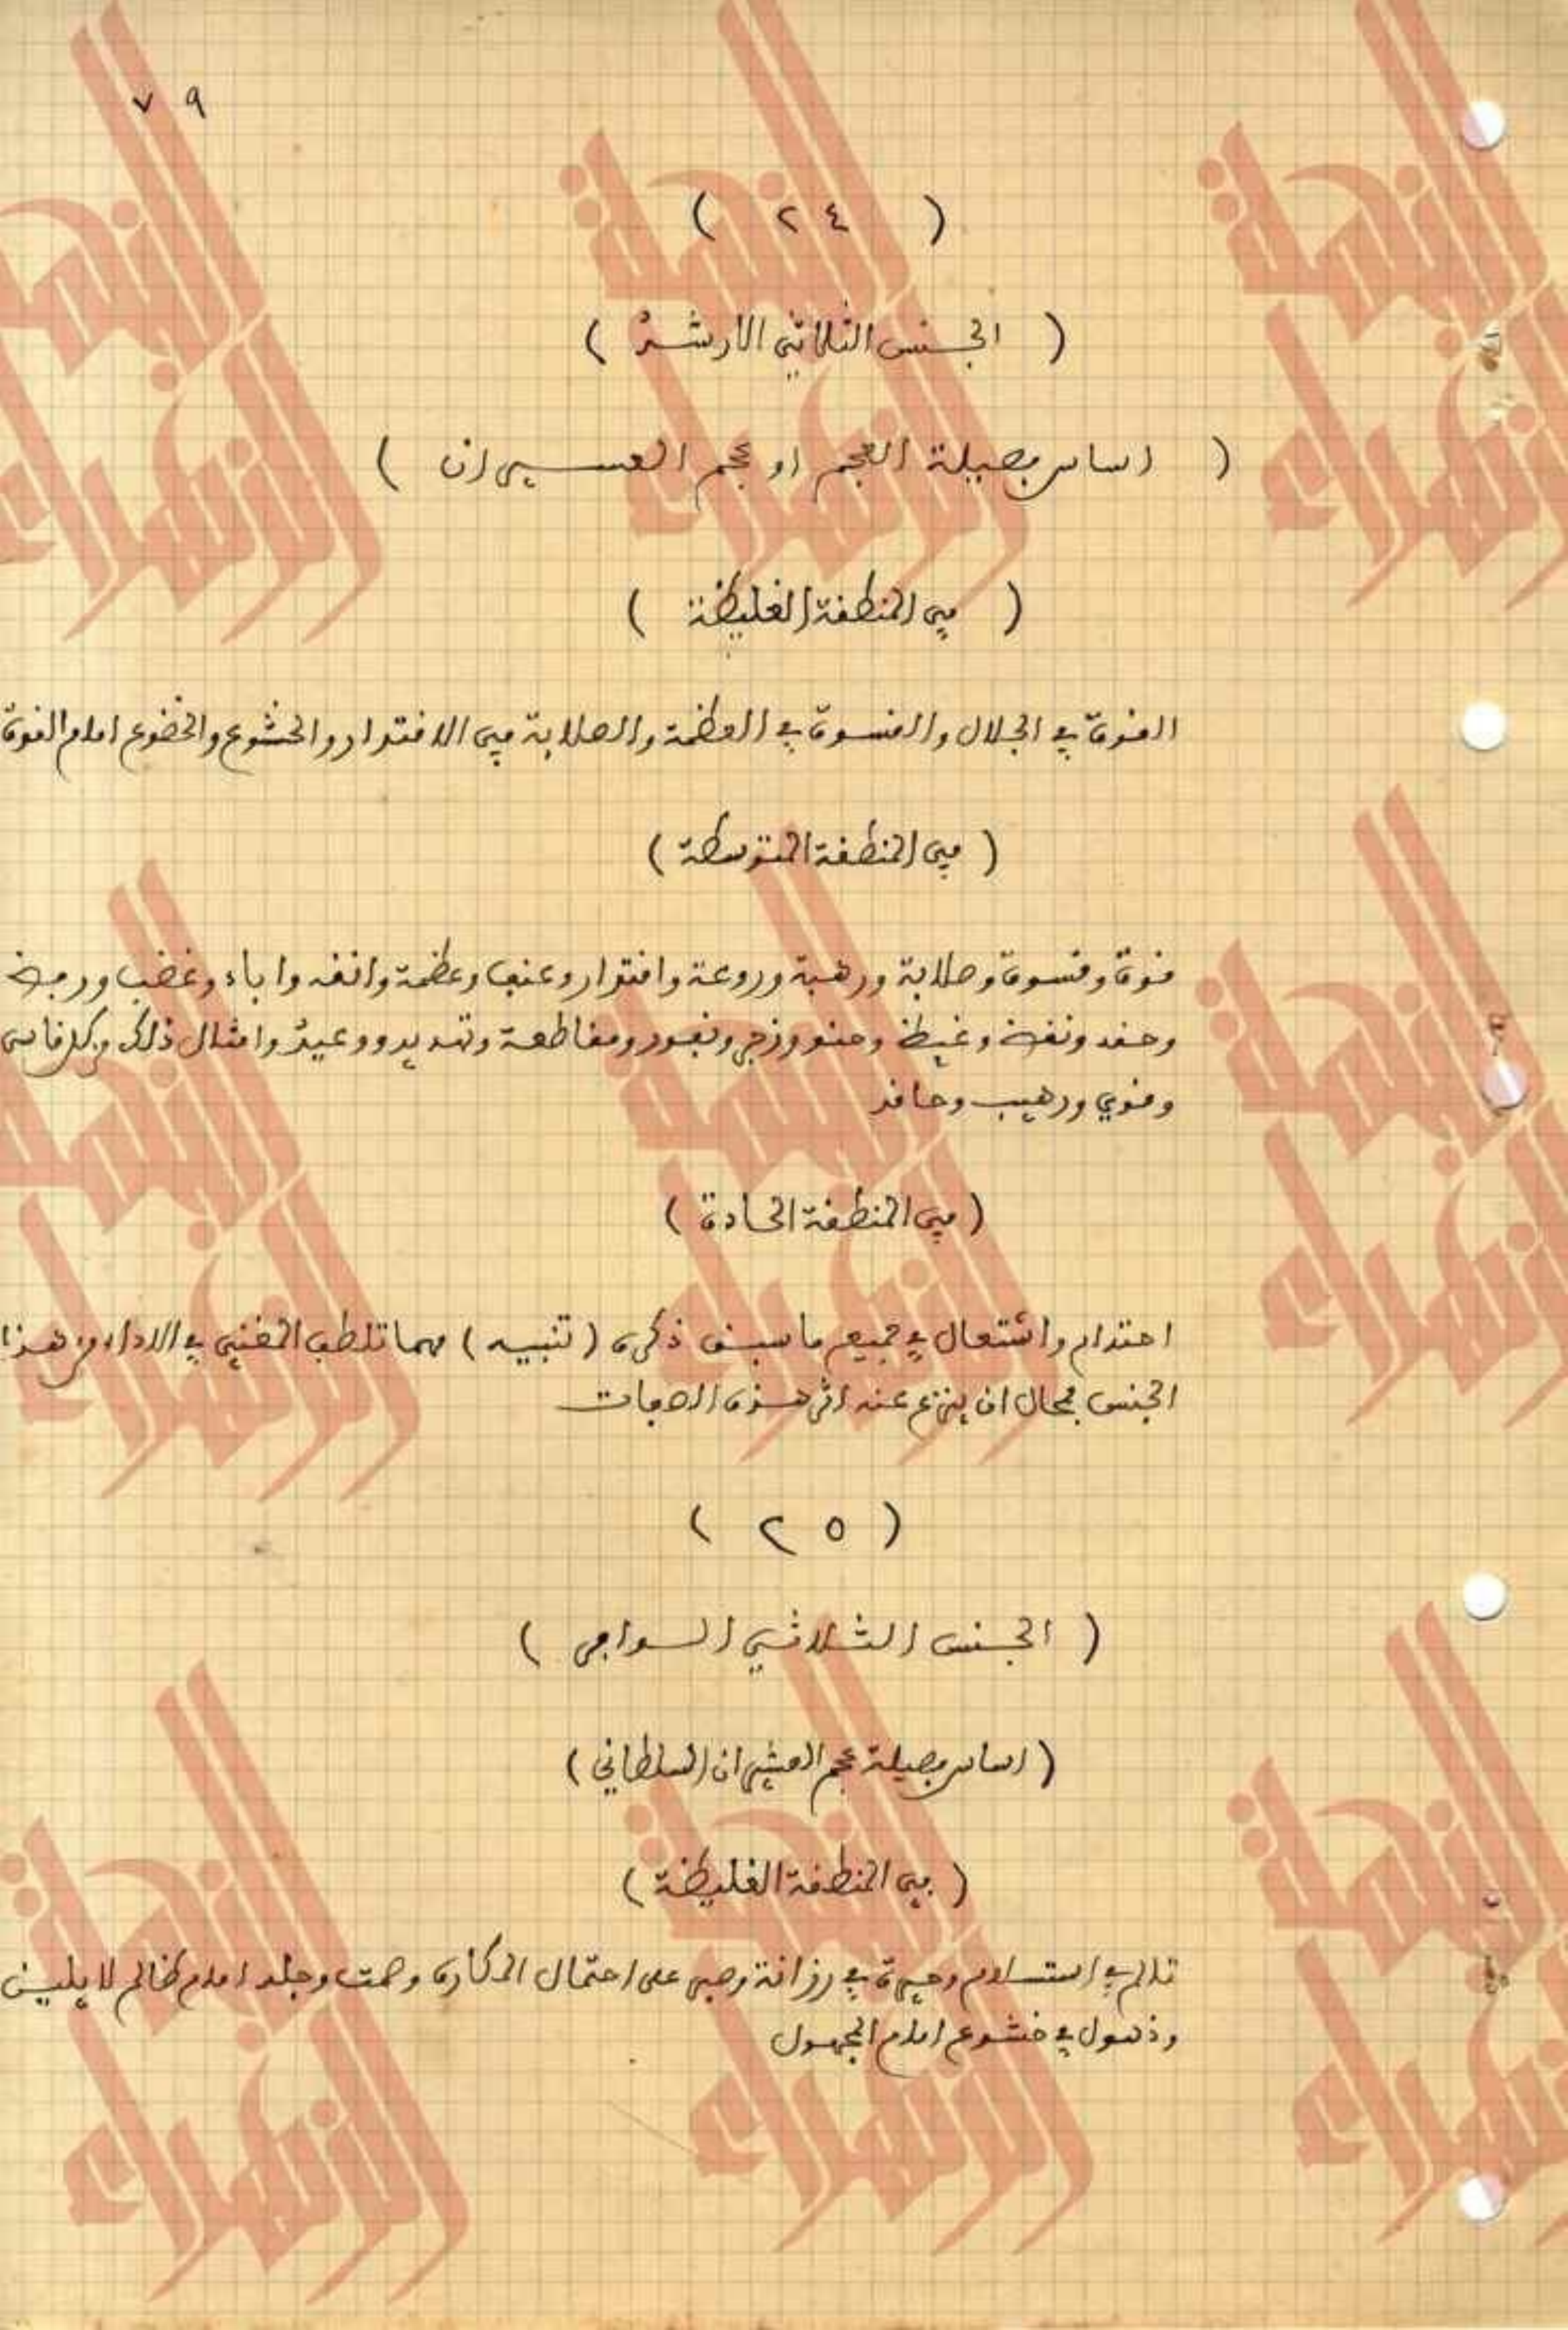 ٧٩
( ٢٤ )
( الجنس الثلاثي الارشد )
( اساس بصيلة العجم او عجم العسيران )
( في المنطقة الغليظة )
القوة في الجلال والقسوة في العظمة والصلابة في الاقتدار والخشوع والخضوع امام القوة
( في المنطقة المتوسطة )
قوة وقسوة وصلابة ورهبة وروعة واقتدار وعنف وعظمة وانفه واباء وغضب
وحقد ونقمة وغيظ وزجر ومقاطعة وتهديد ووعيد وامثال ذلك وكل قاسي
وقوي ورهيب وحاقد
( في المنطقة الحادة )
احتدام واشتعال في جميع ما سبق ذكره ( تنبيه ) مهما تلطف المغني في الاداء من هذا
الجنس فمحال ان ينزع عنه اثر هذه الصفات
( ٢٥ )
( الجنس الثلاثي السواجي )
( اساس بصيلة عجم العشيران السلطاني )
( في المنطقة الغليظة )
تالم في استسلام وحيرة في رزانة وصبر على احتمال المكاره وصمت وجلد امام ظالم لا يلين
وذهول في خشوع امام المجهول
النهضة
الزهراء